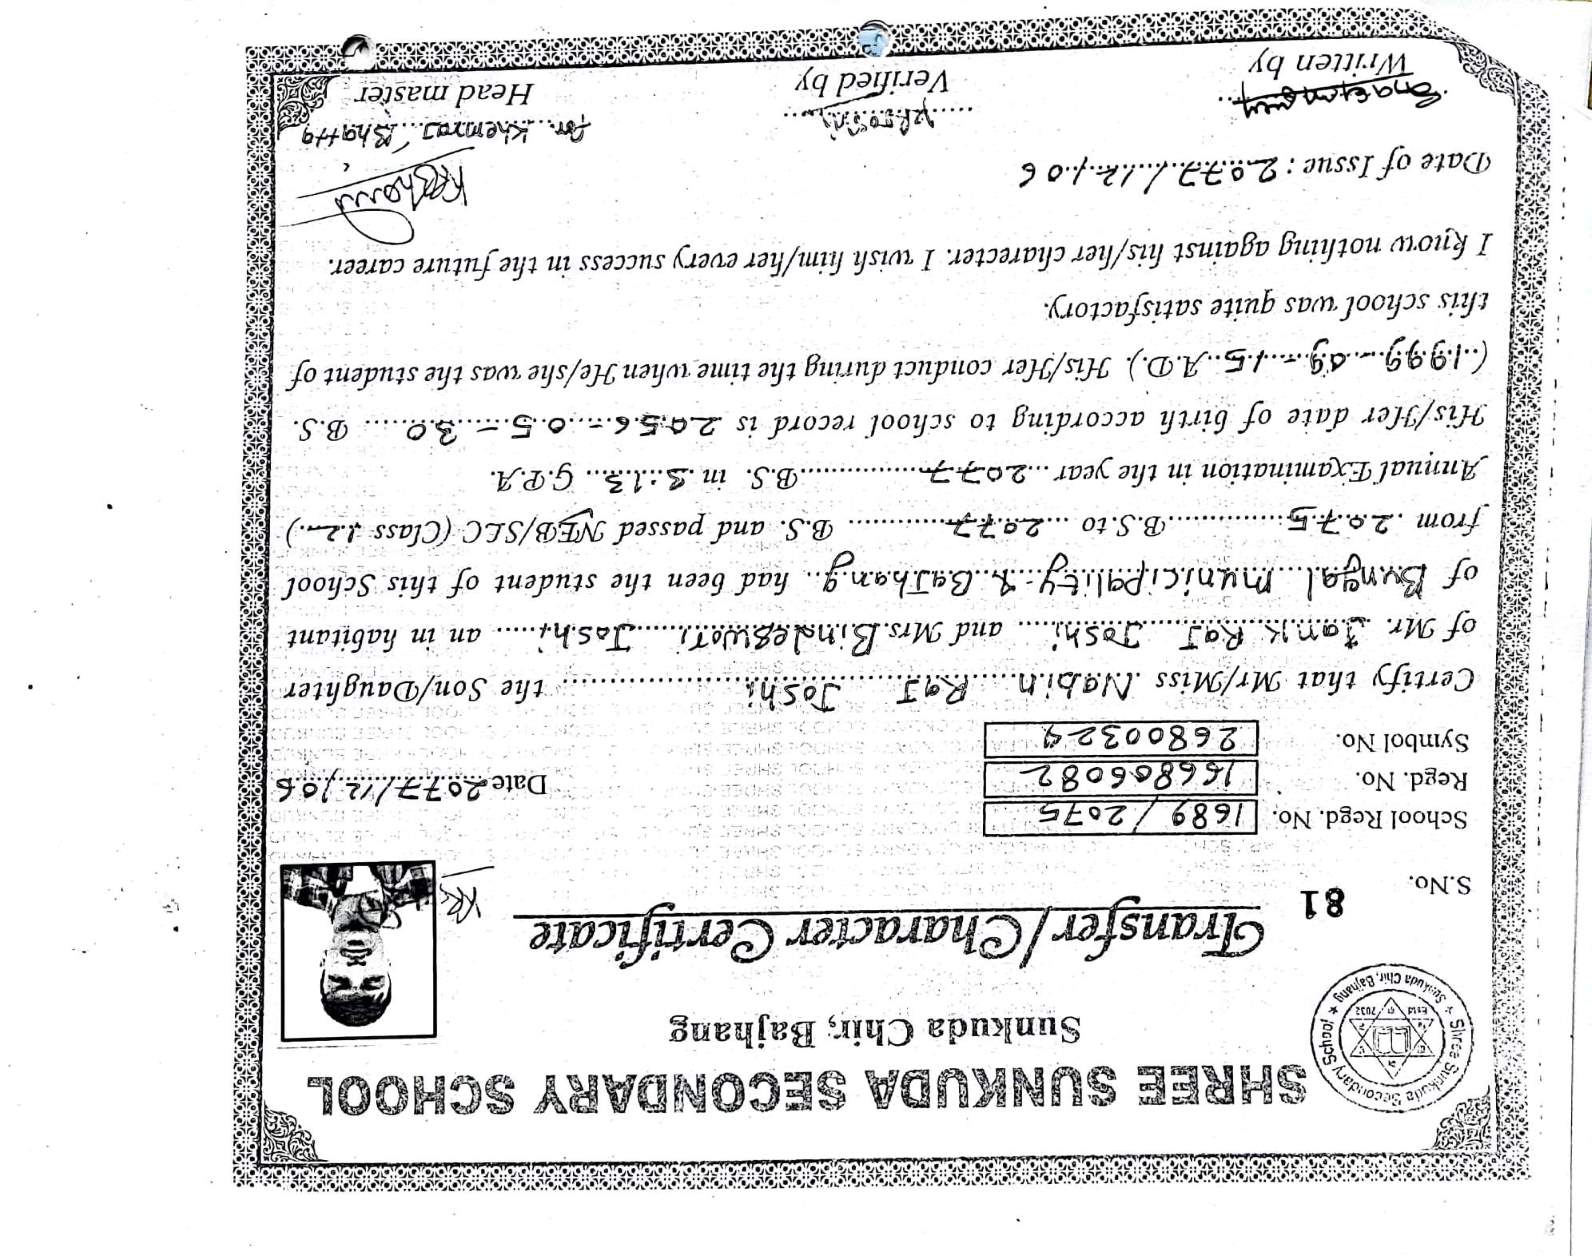 SHREE SUNKUDA SECONDARY SCHOOL
Sunkuda Chir, Bajhang
Shree Sunkuda Secondary School
Estd 2032
Sunkuda Chir, Bajhang
Transfer/Character Certificate
S.No. 81
School Regd. No. 1689/2075
Regd. No. 166806082
Date 2077/12/06
Symbol No. 26800324
Certify that Mr/Miss Nabin Raj Joshi the Son/Daughter
of Mr. Jank Raj Joshi and Mrs. Bindeswori Joshi an in habitant
of Bungal Municipality-1 Bajhang had been the student of this School
from 2075 B.S. to 2077 B.S. and passed NEB/SLC (Class 12)
Annual Examination in the year 2077 B.S. in 3.13 G.P.A.
His/Her date of birth according to school record is 2056-05-30 B.S.
(1999-09-15 A.D.). His/Her conduct during the time when He/she was the student of
this school was quite satisfactory.
I know nothing against his/her charecter. I wish him/her every success in the future career.
Date of Issue : 2077/12/06
for. Khemraj Bhatta
Written by
Verified by
Head master